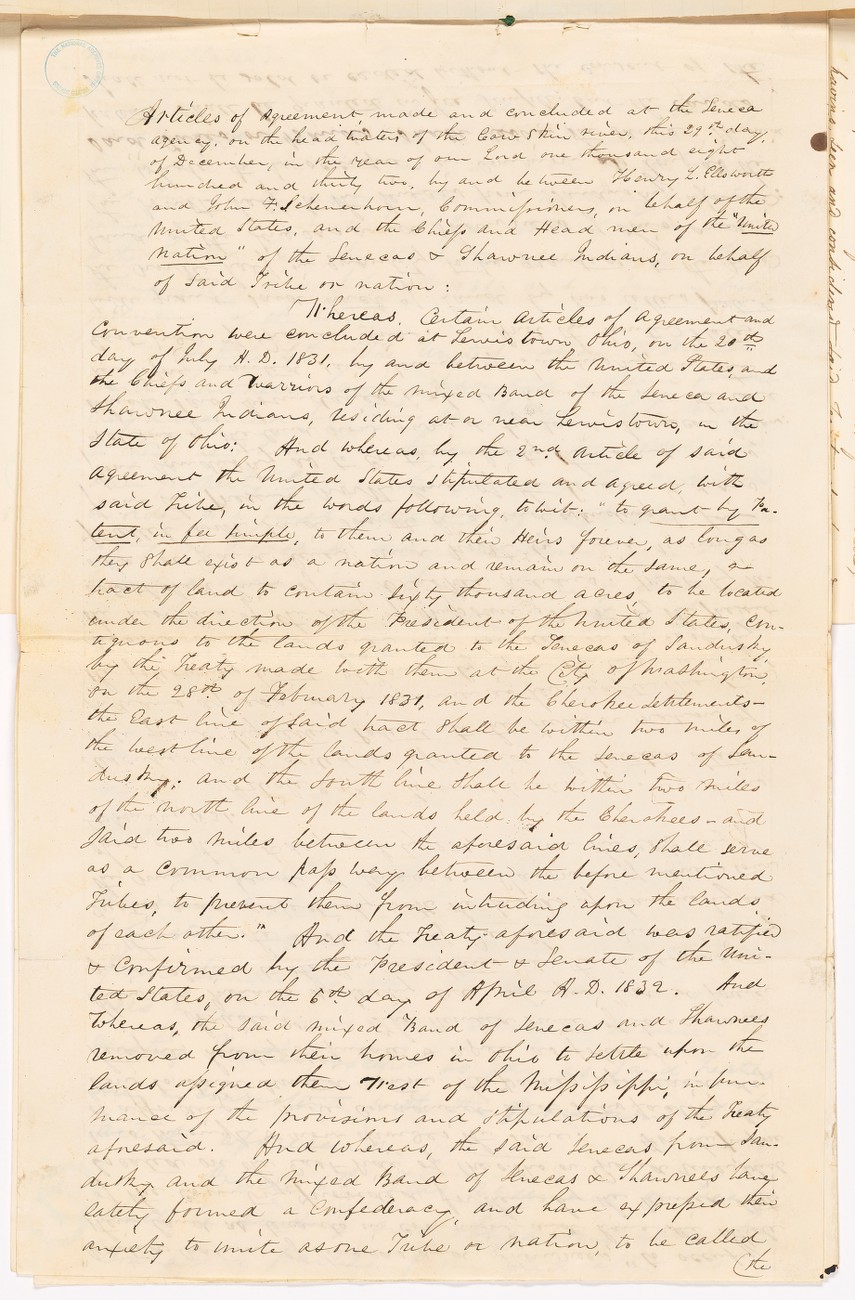 Articles of Agreement, made and concluded at the Seneca
agency, on the head waters of the Cow Skin river, this 29th day,
of December, in the year of our Lord one thousand eight
hundred and thirty two, by and between Henry L. Ellsworth
and John F. Schermerhorn, Commissioners, on behalf of the
United States, and the Chiefs and Head men of the "United
Nation" of the Senecas & Shawnee Indians, on behalf
of said Tribe or nation:
Whereas, Certain articles of Agreement and
Convention were concluded at Lewistown, Ohio, on the 20th
day of July A. D. 1831, by and between the United States, and
the Chiefs and Warriors of the mixed Band of the Seneca and
Shawnee Indians, residing at or near Lewistown, in the
State of Ohio: And whereas, by the 2nd article of said
agreement the United States stipulated and agreed, with
said Tribe, in the words following, to wit: "to grant by Pa-
tent, in fee simple, to them and their Heirs forever, as long as
they shall exist as a nation and remain on the same, a
tract of land to contain sixty thousand acres, to be located
under the direction of the President of the United States, con-
tiguous to the lands granted to the Senecas of Sandusky,
by the Treaty made with them at the City of Washington,
on the 28th of February 1831, and the Cherokee settlements—
the East line of said tract shall be within two miles of
the west line of the lands granted to the Senecas of San-
dusky; and the South line shall be within two miles
of the north line of the lands held by the Cherokees – and
said two miles between the aforesaid lines, shall serve
as a common pass way between the before mentioned
Tribes, to prevent them from intruding upon the lands
of each other." And the Treaty aforesaid was ratified
& confirmed by the President & Senate of the Uni-
ted States, on the 6th day of April A. D. 1832. And
Whereas, the said mixed Band of Senecas and Shawnees
removed from their homes in Ohio to settle upon the
lands assigned them West of the Mississippi, in pur-
suance of the provisions and stipulations of the Treaty
aforesaid. And whereas, the said Senecas from San-
dusky, and the mixed Band of Senecas & Shawnees have
lately formed a confederacy, and have expressed their
anxiety to unite as one Tribe or nation, to be called
(the
having seen and considered said